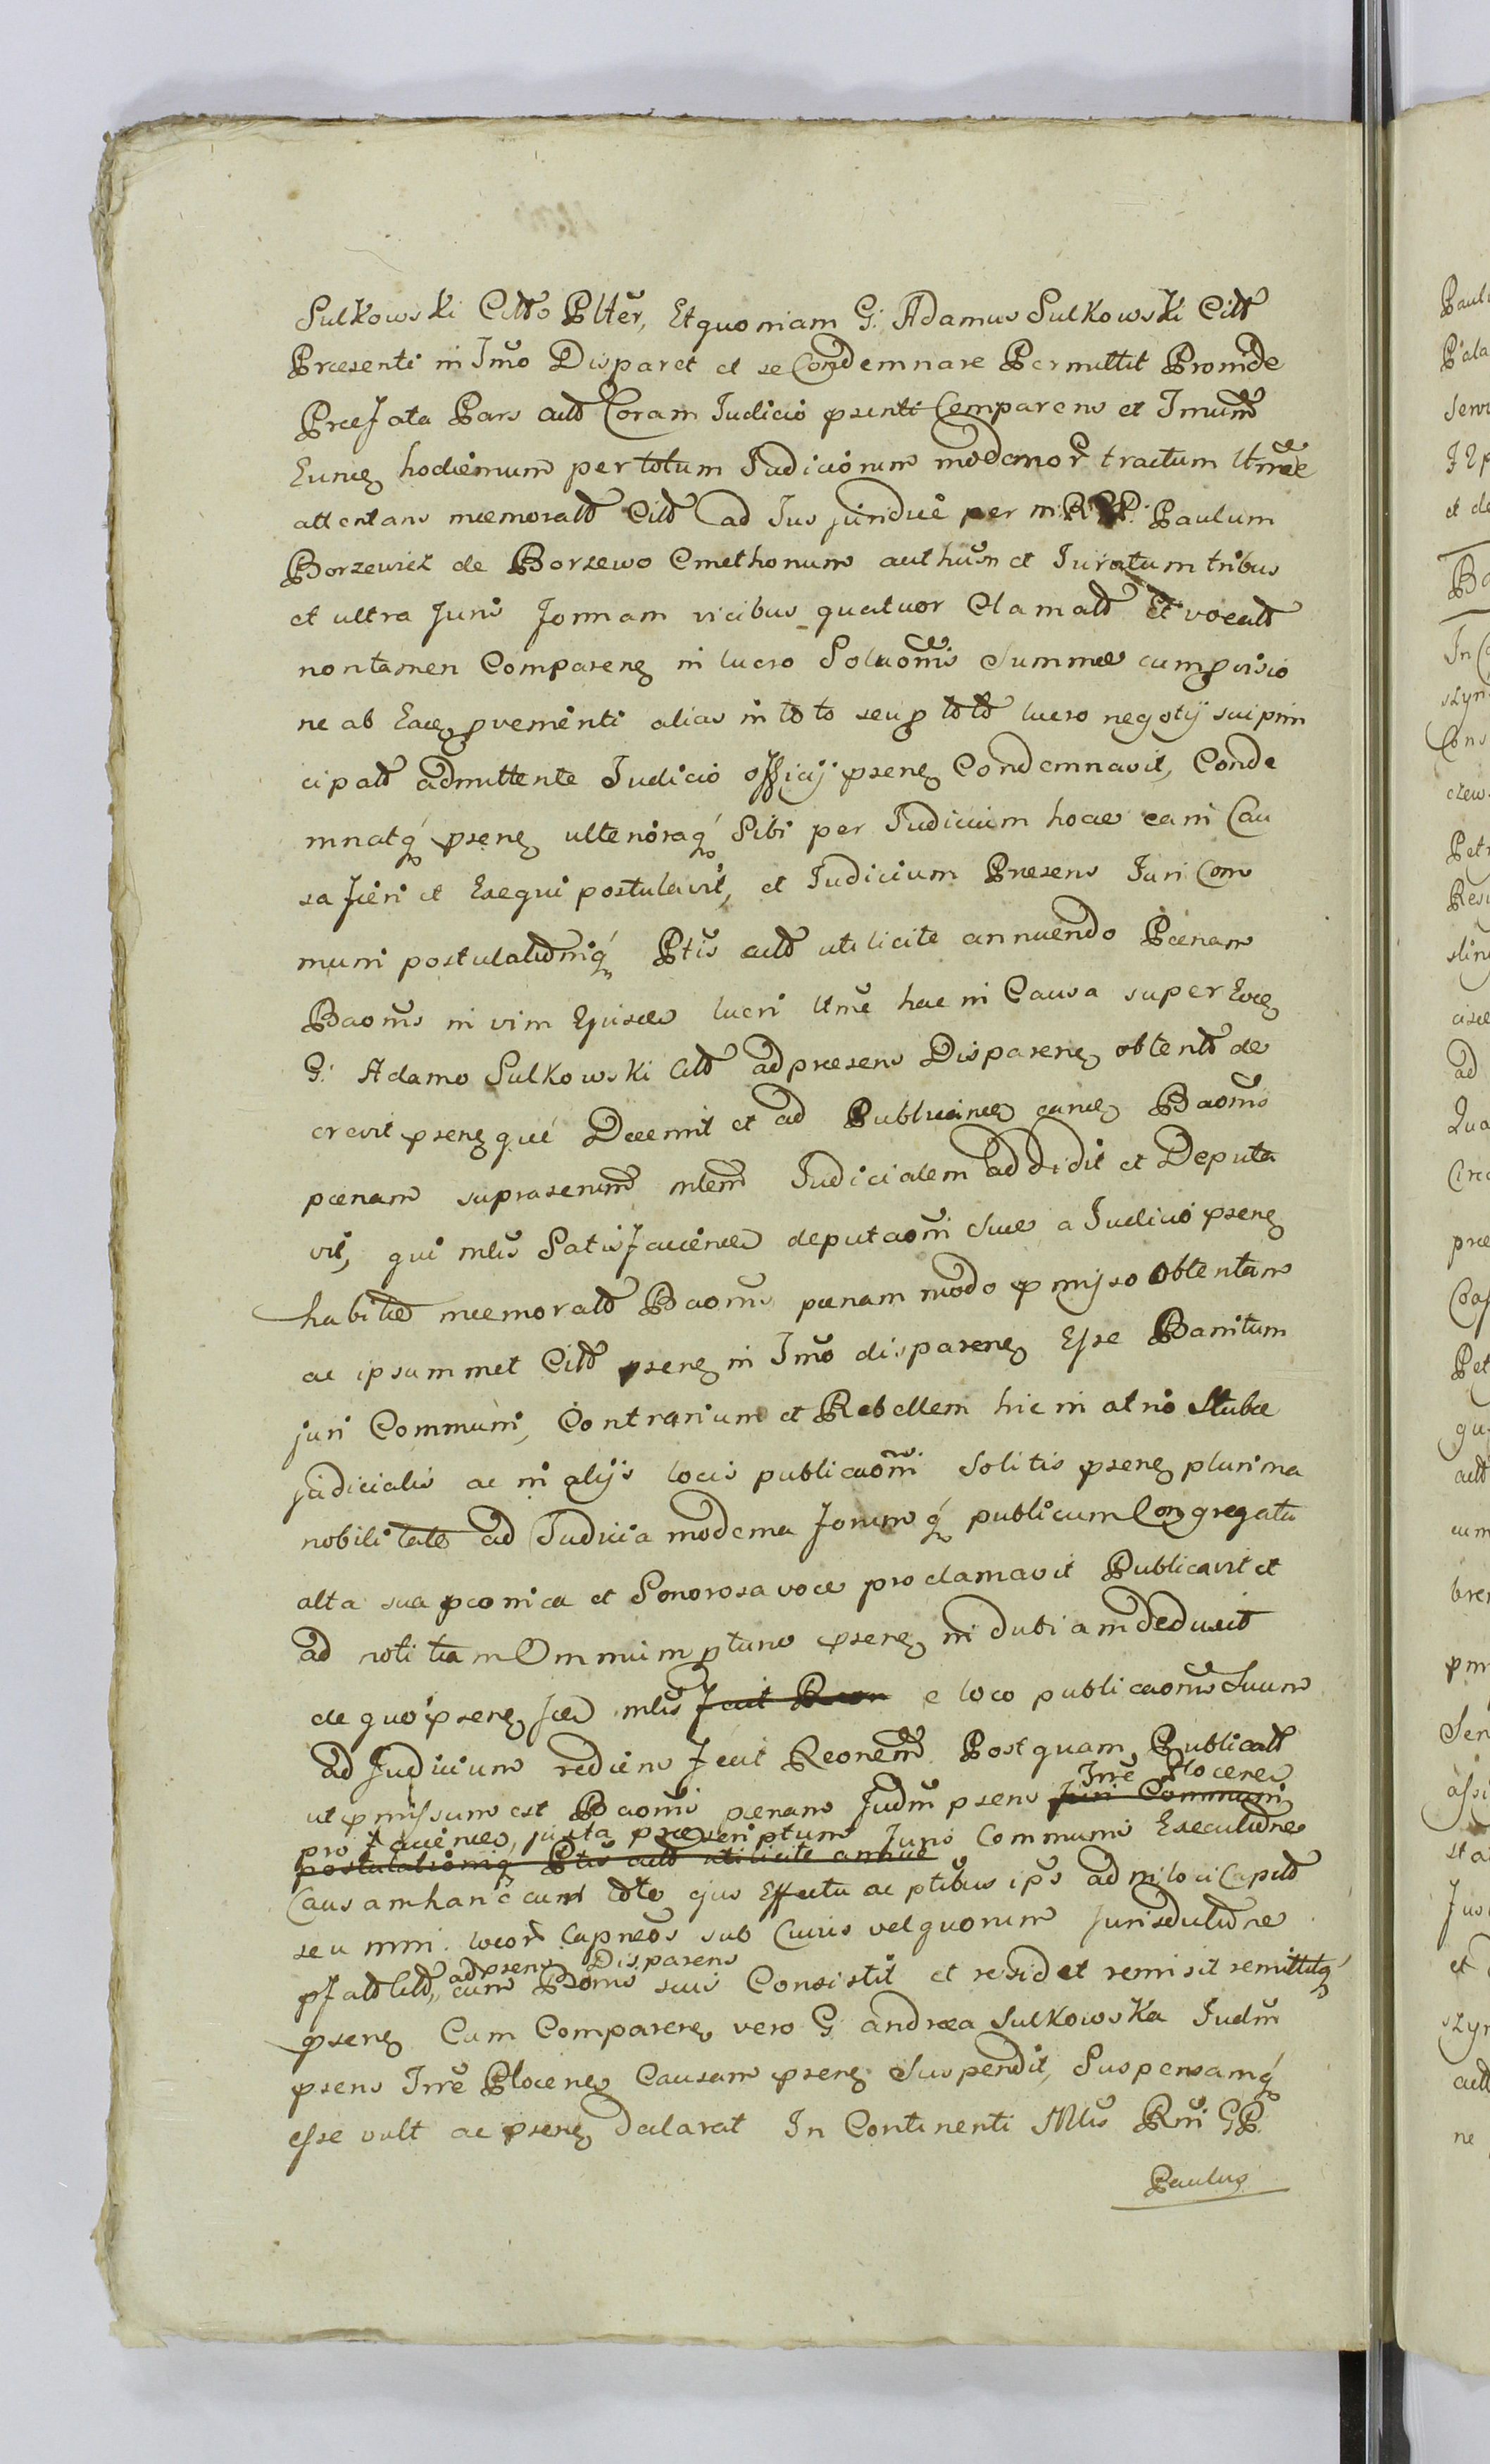 Sulkowski Citto Pltēr, Et quoniam G: Adamus Sulkowski Citt
Præsenti in Tmō Disparet et se Condemnare Permittit Proinde
Præfata Pars actt Coram Iudicio psenti Comparens et Tmum
Eunq hodiernum per totum Iudiciorum modernor tractum Ltmē
attentans memoratt Citt ad Jus juridice per m: R GP. Paulum
Borzewicz de Borzewo Cmethonum authum et Juratum tribus
et ultra Juris formam vicibus quatuor Clamatt Et vocatt
non tamen Compareng in lucro Solutionis Summæ cum pvisio
ne ab Eaeg pvenienti alias in toto seu p totto lucro negotij sui prin
cipatt admittente Iudicio officij pseng Condemnavit, Conde
mnatq́ pseng ulterioraq́ Sibi per Iudicium hoc ea in Cau
sa fieri et Exequi postulavit, et Iudicium Præsens Juri Com
muni postulationiq́ Ptis actt uti licite annuendo Pœnam
Baonis in vim Ejusce lucri Ltmē hac in Causa super Eoeg
G: Adamo Sulkowski Citt ad præsens Dispareng obtentt de
crevit psengque Decernit et ad Publicanc eang Baonis
pœnam suprascriptt mlem Iudicialem addidit et Deputa
vit, qui mlis Satisfaciens deputaoni Suæ a Iudicio pseng
habitæ memoratt Baonis pœnam modo pmisso obtentam
ac ipsummet Citt pseng in Tmō dispareng Esse Banitum
juri Communi, Contrarium et Rebellem hic in atrio Stubæ
judicialis ac in alijs locis publicaoni Solitis pseng plurima
nobilitate ad Iudicia moderna forumq́ publicum Congregata
alta sua pconica et Sonorosa voce proclamavit Publicavit et
ad notitiam Omnium ptunc pseng indubiam deduxit
de quo pseng idem mlis fecit Reon e loco publicaonis Suum
ad Judicium rediens fecit Reonem Postquam Publicatt
ut pmissum est Baonis pœnam Judm psens Juri Communi Trrē Plocense
postulationiq́ Ptis actt uti licite annuo
pro faciencs, juxta præscriptum Juris Communis Executione
Causam hanc cum toto ejus Effectu ac ptibus ips ad mi loci Capitt
seu mm. locor Capneos sub Cujus vel quorum Jurisdictione
pfatt Citt, ad psens Disparens cum Bonis suis Consistit et residet remisit remittitq́
pseng Cum Compareng vero G andrea Sulkowska Iudm
psens Trrē Plocense Causam pseng Suspendit, Suspensamq́
esse vult ac pseng declarat In Continenti Mlis Rni GP.
Paulus